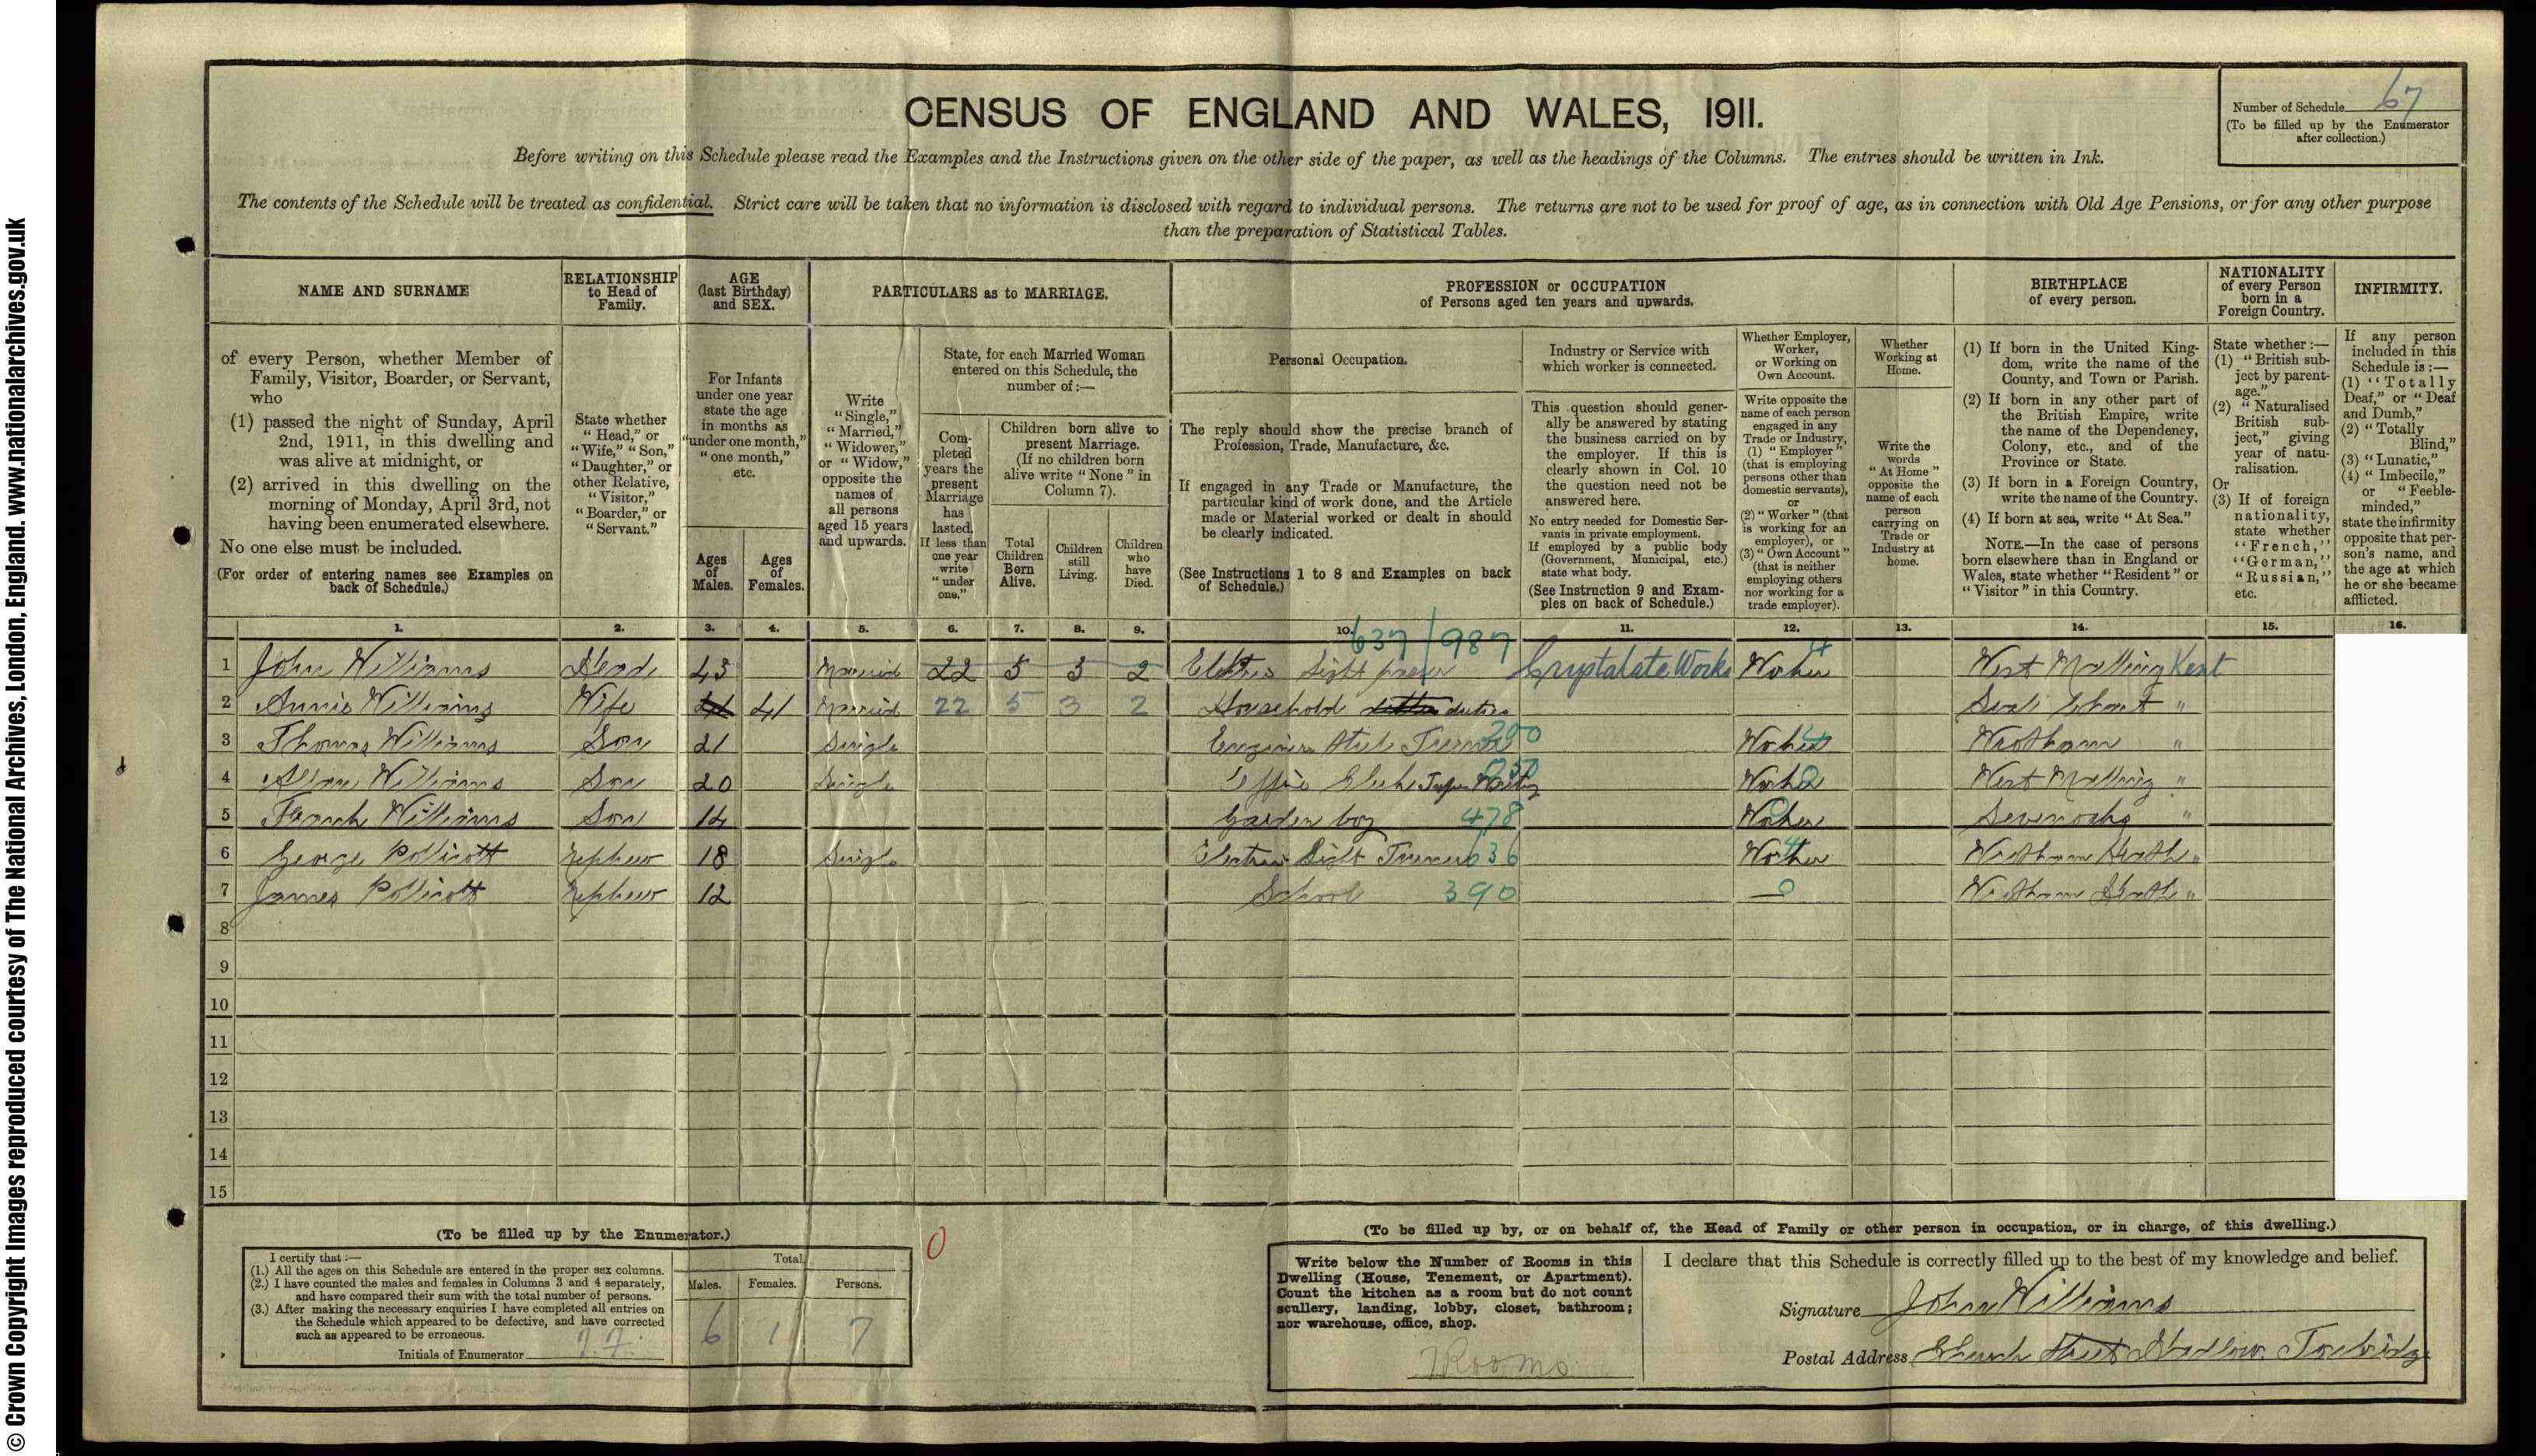 © Crown Copyright Images reproduced courtesy of The National Archives, London, England. www.nationalarchives.gov.uk
CENSUS OF ENGLAND AND WALES, 1911.
Number of Schedule 67
(To be filled up by the Enumerator after collection.)
Before writing on this Schedule please read the Examples and the Instructions given on the other side of the paper, as well as the headings of the Columns. The entries should be written in Ink.
The contents of the Schedule will be treated as confidential. Strict care will be taken that no information is disclosed with regard to individual persons. The returns are not to be used for proof of age, as in connection with Old Age Pensions, or for any other purpose
than the preparation of Statistical Tables.
NAME AND SURNAME
of every Person, whether Member of
Family, Visitor, Boarder, or Servant,
who
(1) passed the night of Sunday, April
2nd, 1911, in this dwelling and
was alive at midnight, or
(2) arrived in this dwelling on the
morning of Monday, April 3rd, not
having been enumerated elsewhere.
No one else must be included.
(For order of entering names see Examples on
back of Schedule.)
RELATIONSHIP
to Head of
Family.
State whether
"Head," or
"Wife," "Son,"
"Daughter," or
other Relative,
"Visitor,"
"Boarder," or
"Servant."
AGE
(last Birthday)
and SEX.
For Infants
under one year
state the age
in months as
"under one month,"
"one month,"
etc.
Ages
of
Males.
Ages
of
Females.
PARTICULARS as to MARRIAGE.
Write
"Single,"
"Married,"
"Widower,"
or "Widow,"
opposite the
names of
all persons
aged 15 years
and upwards.
State, for each Married Woman
entered on this Schedule, the
number of :—
Com-
pleted
years the
present
Marriage
has
lasted.
If less than
one year
write
"under
one."
Children born alive to
present Marriage.
(If no children born
alive write "None" in
Column 7).
Total
Children
Born
Alive.
Children
still
Living.
Children
who
have
Died.
PROFESSION or OCCUPATION
of Persons aged ten years and upwards.
Personal Occupation.
The reply should show the precise branch of
Profession, Trade, Manufacture, &c.
If engaged in any Trade or Manufacture, the
particular kind of work done, and the Article
made or Material worked or dealt in should
be clearly indicated.
(See Instructions 1 to 8 and Examples on back
of Schedule.)
Industry or Service with
which worker is connected.
This question should gener-
ally be answered by stating
the business carried on by
the employer. If this is
clearly shown in Col. 10
the question need not be
answered here.
No entry needed for Domestic Ser-
vants in private employment.
If employed by a public body
(Government, Municipal, etc.)
state what body.
(See Instruction 9 and Exam-
ples on back of Schedule.)
Whether Employer,
Worker,
or Working on
Own Account.
Write opposite the
name of each person
engaged in any
Trade or Industry,
(1) "Employer"
(that is employing
persons other than
domestic servants),
or
(2) "Worker" (that
is working for an
employer), or
(3) "Own Account"
(that is neither
employing others
nor working for a
trade employer).
Whether
Working at
Home.
Write the
words
"At Home"
opposite the
name of each
person
carrying on
Trade or
Industry at
home.
BIRTHPLACE
of every person.
(1) If born in the United King-
dom, write the name of the
County, and Town or Parish.
(2) If born in any other part of
the British Empire, write
the name of the Dependency,
Colony, etc., and of the
Province or State.
(3) If born in a Foreign Country,
write the name of the Country.
(4) If born at sea, write "At Sea."
NOTE.—In the case of persons
born elsewhere than in England or
Wales, state whether "Resident" or
"Visitor" in this Country.
NATIONALITY
of every Person
born in a
Foreign Country.
State whether :—
(1) "British sub-
ject by parent-
age."
(2) "Naturalised
British sub-
ject," giving
year of natu-
ralisation.
Or
(3) If of foreign
nationality,
state whether
"French,"
"German,"
"Russian,"
etc.
INFIRMITY.
If any person
included in this
Schedule is :—
(1) "Totally
Deaf," or "Deaf
and Dumb,"
(2) "Totally
Blind,"
(3) "Lunatic,"
(4) "Imbecile,"
or "Feeble-
minded,"
state the infirmity
opposite that per-
son's name, and
the age at which
he or she became
afflicted.
1. 2. 3. 4. 5. 6. 7. 8. 9. 10. 11. 12. 13. 14. 15. 16.
637/987 4
1 John Williams Head 43 Married 22 5 3 2 Electric Light Crystalate Works Worker West Malling Kent
2 Annie Williams Wife 41 41 Married 22 5 3 2 Household duties Seal Chart "
3 Thomas Williams Son 21 Single Engineer Turner 200 Worker Wrotham "
4 Allan Williams Son 20 Single Office Clerk Type Writing Worker West Malling "
5 Frank Williams Son 14 Garden boy 478 Worker Sevenoaks "
6 George Pollicott Nephew 18 Single Electric Light Turner 636 Worker Wrotham Heath "
7 James Pollicott Nephew 12 School 390 0 Wrotham Heath "
8
9
10
11
12
13
14
15
(To be filled up by the Enumerator.)
I certify that :—
(1.) All the ages on this Schedule are entered in the proper sex columns.
(2.) I have counted the males and females in Columns 3 and 4 separately,
and have compared their sum with the total number of persons.
(3.) After making the necessary enquiries I have completed all entries on
the Schedule which appeared to be defective, and have corrected
such as appeared to be erroneous.
Initials of Enumerator
Total
Males. Females. Persons.
6 1 7
0
(To be filled up by, or on behalf of, the Head of Family or other person in occupation, or in charge, of this dwelling.)
Write below the Number of Rooms in this
Dwelling (House, Tenement, or Apartment).
Count the kitchen as a room but do not count
scullery, landing, lobby, closet, bathroom;
nor warehouse, office, shop.
7 Rooms
I declare that this Schedule is correctly filled up to the best of my knowledge and belief.
Signature John Williams
Postal Address Church Street Hadlow Tonbridge